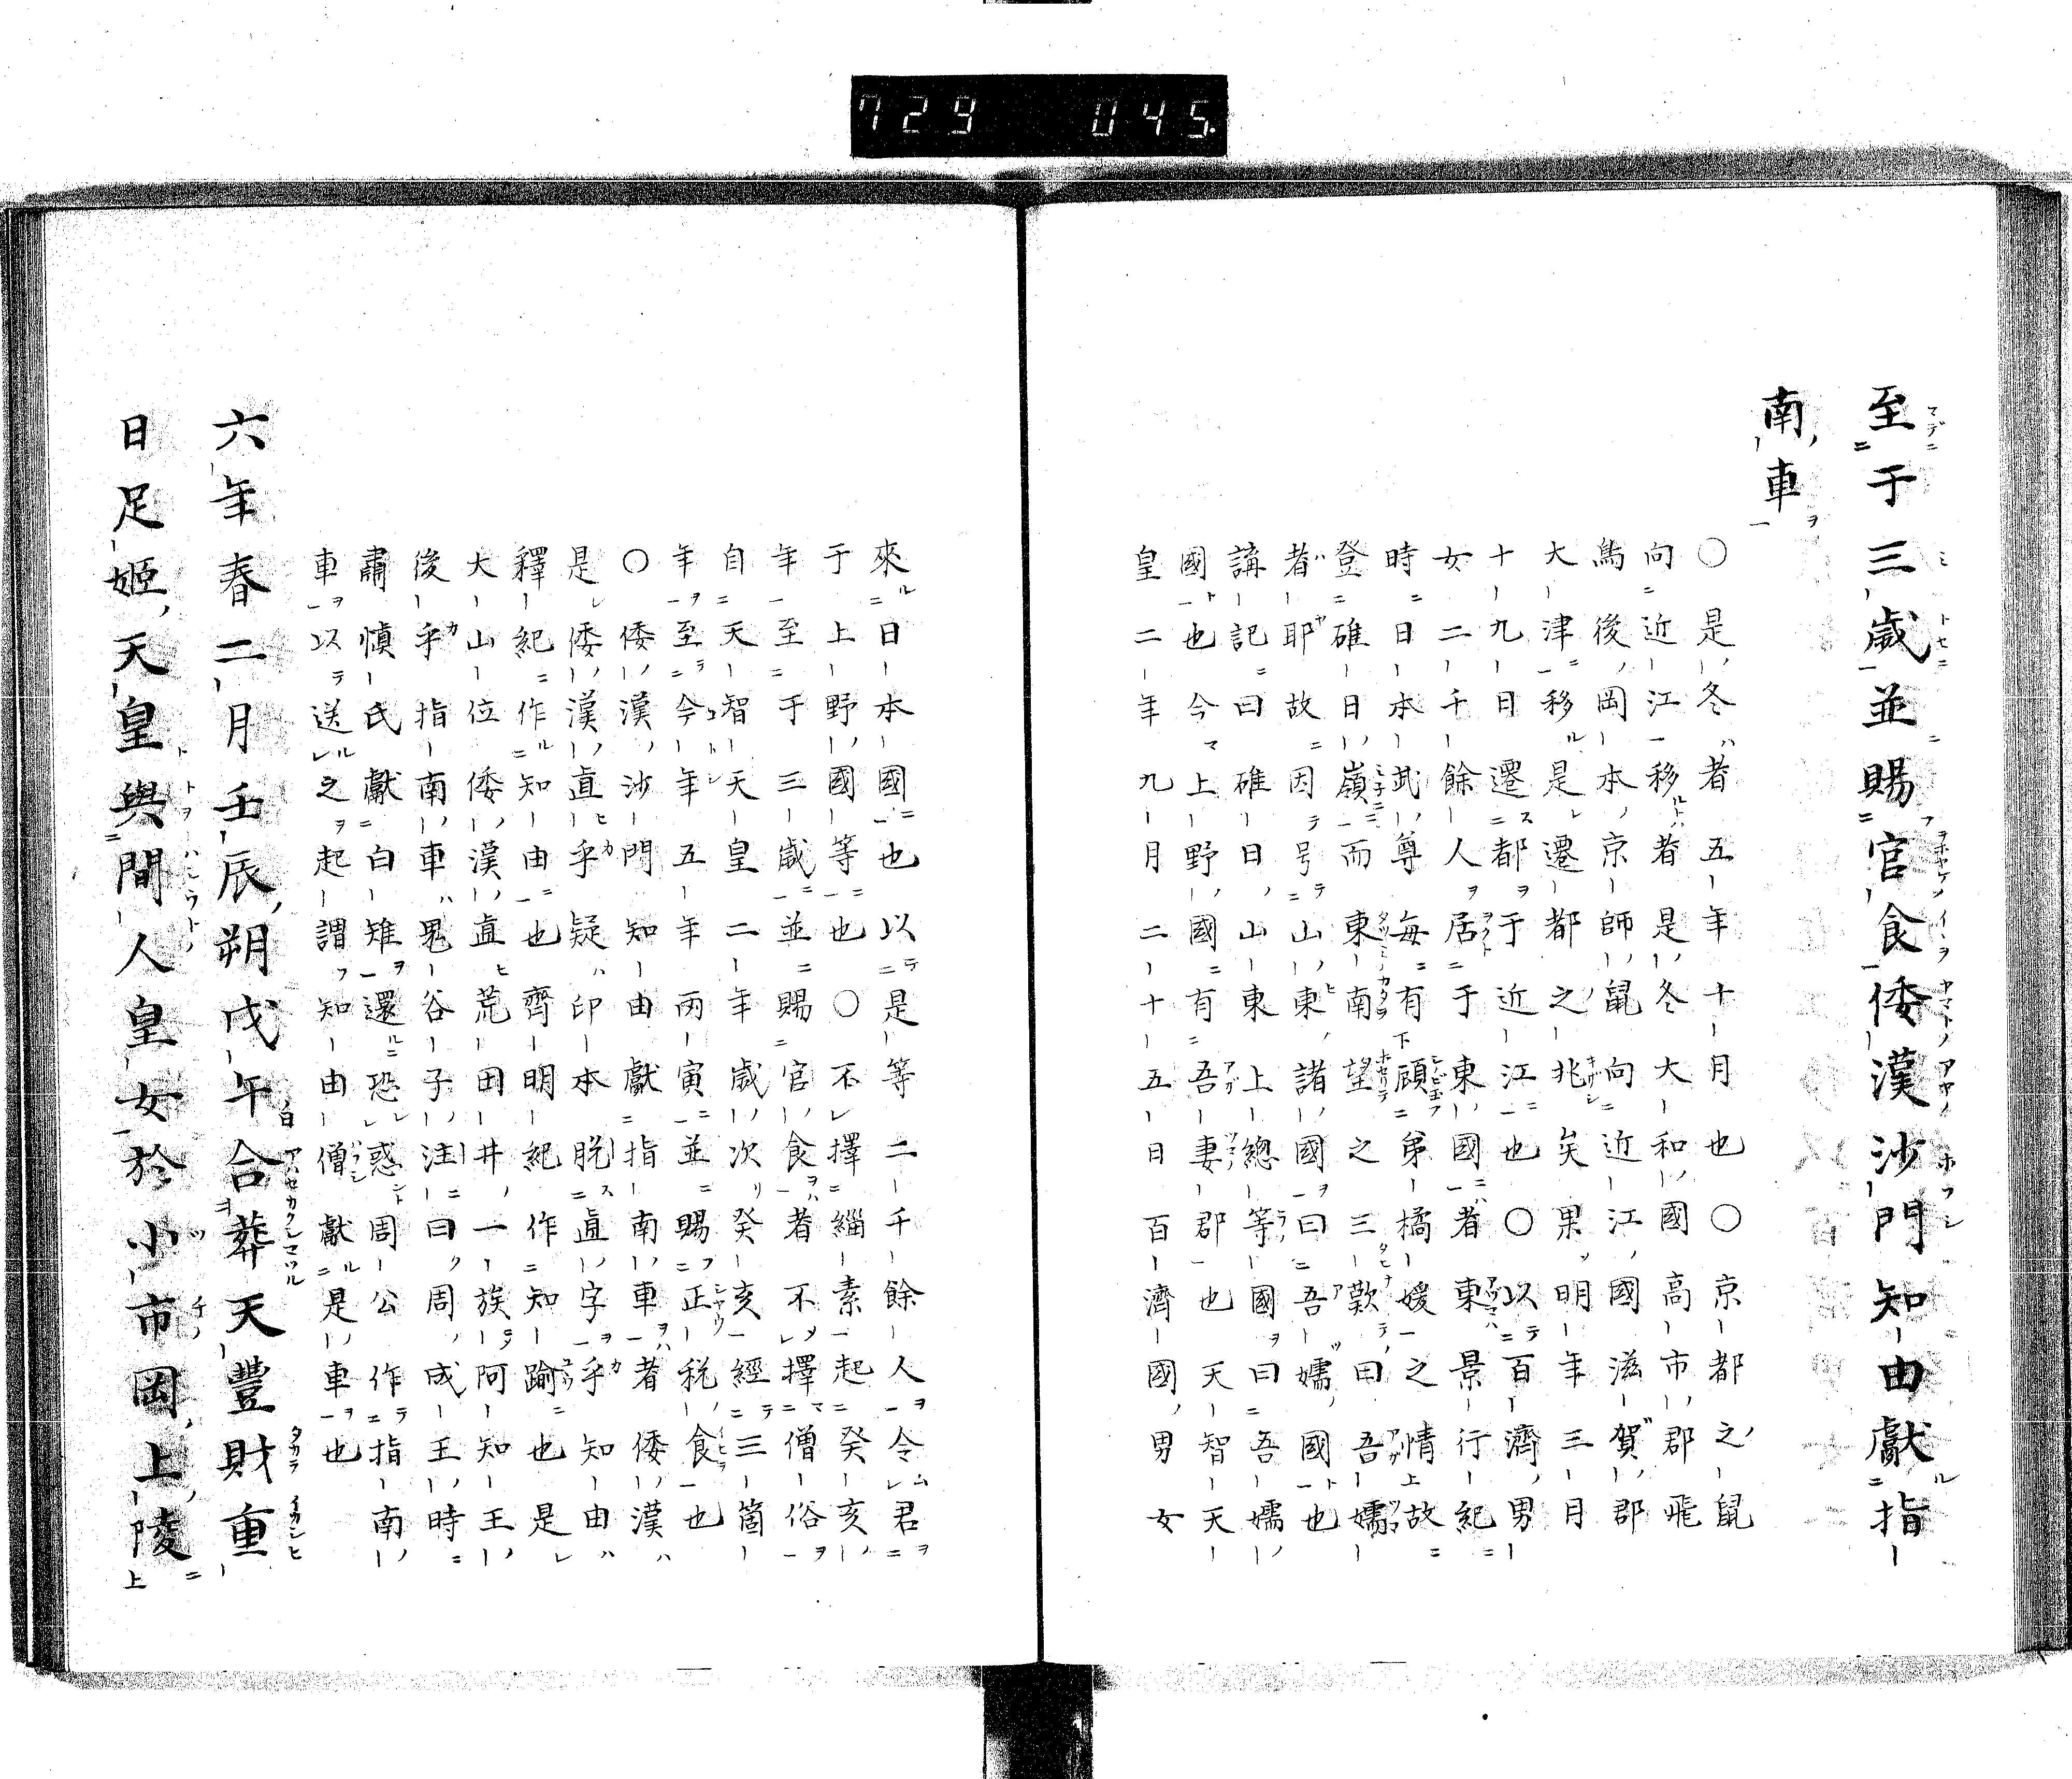 729 045
至于三歲並賜官食倭漢沙門知由獻指
南車
○是冬者五年十月也○京都之鼠
向近江移者是冬大和國高市郡飛
鳥後岡本京師鼠向近江國滋賀郡
大津移是遷都之兆矣果明年三月
十九日遷都于近江也○以百濟男
女二千餘人居于東國者東景行紀
時日本武尊每有顧弟橘媛之情故
登碓日嶺而東南望之三歎曰吾嬬
者耶故因号山東諸國曰吾嬬國也
講記曰碓日山東上總等國曰吾嬬
國也今上野國有吾妻郡也天智天
皇二年九月二十五日百濟國男女
來日本國也以是等二千餘人令君
于上野國等也○不擇緇素起癸亥
年至于三歲並賜官食者不擇僧俗
自天智天皇二年歲次癸亥經三箇
年至今年五年兩寅並賜正稅食也
○倭漢沙門知由獻指南車者倭漢
是倭漢直乎疑印本脱直字乎知由
釋紀作知由也齊明紀作知踰也是
大山位倭漢直荒田井一族阿知王
後乎指南車鬼谷子注曰周成王時
肅慎氏獻白雉還恐惑周公作指南
車以送之起謂知由僧獻是車也
六年春二月壬辰朔戊午合葬天豐財重
日足姬天皇與間人皇女於小市岡上陵